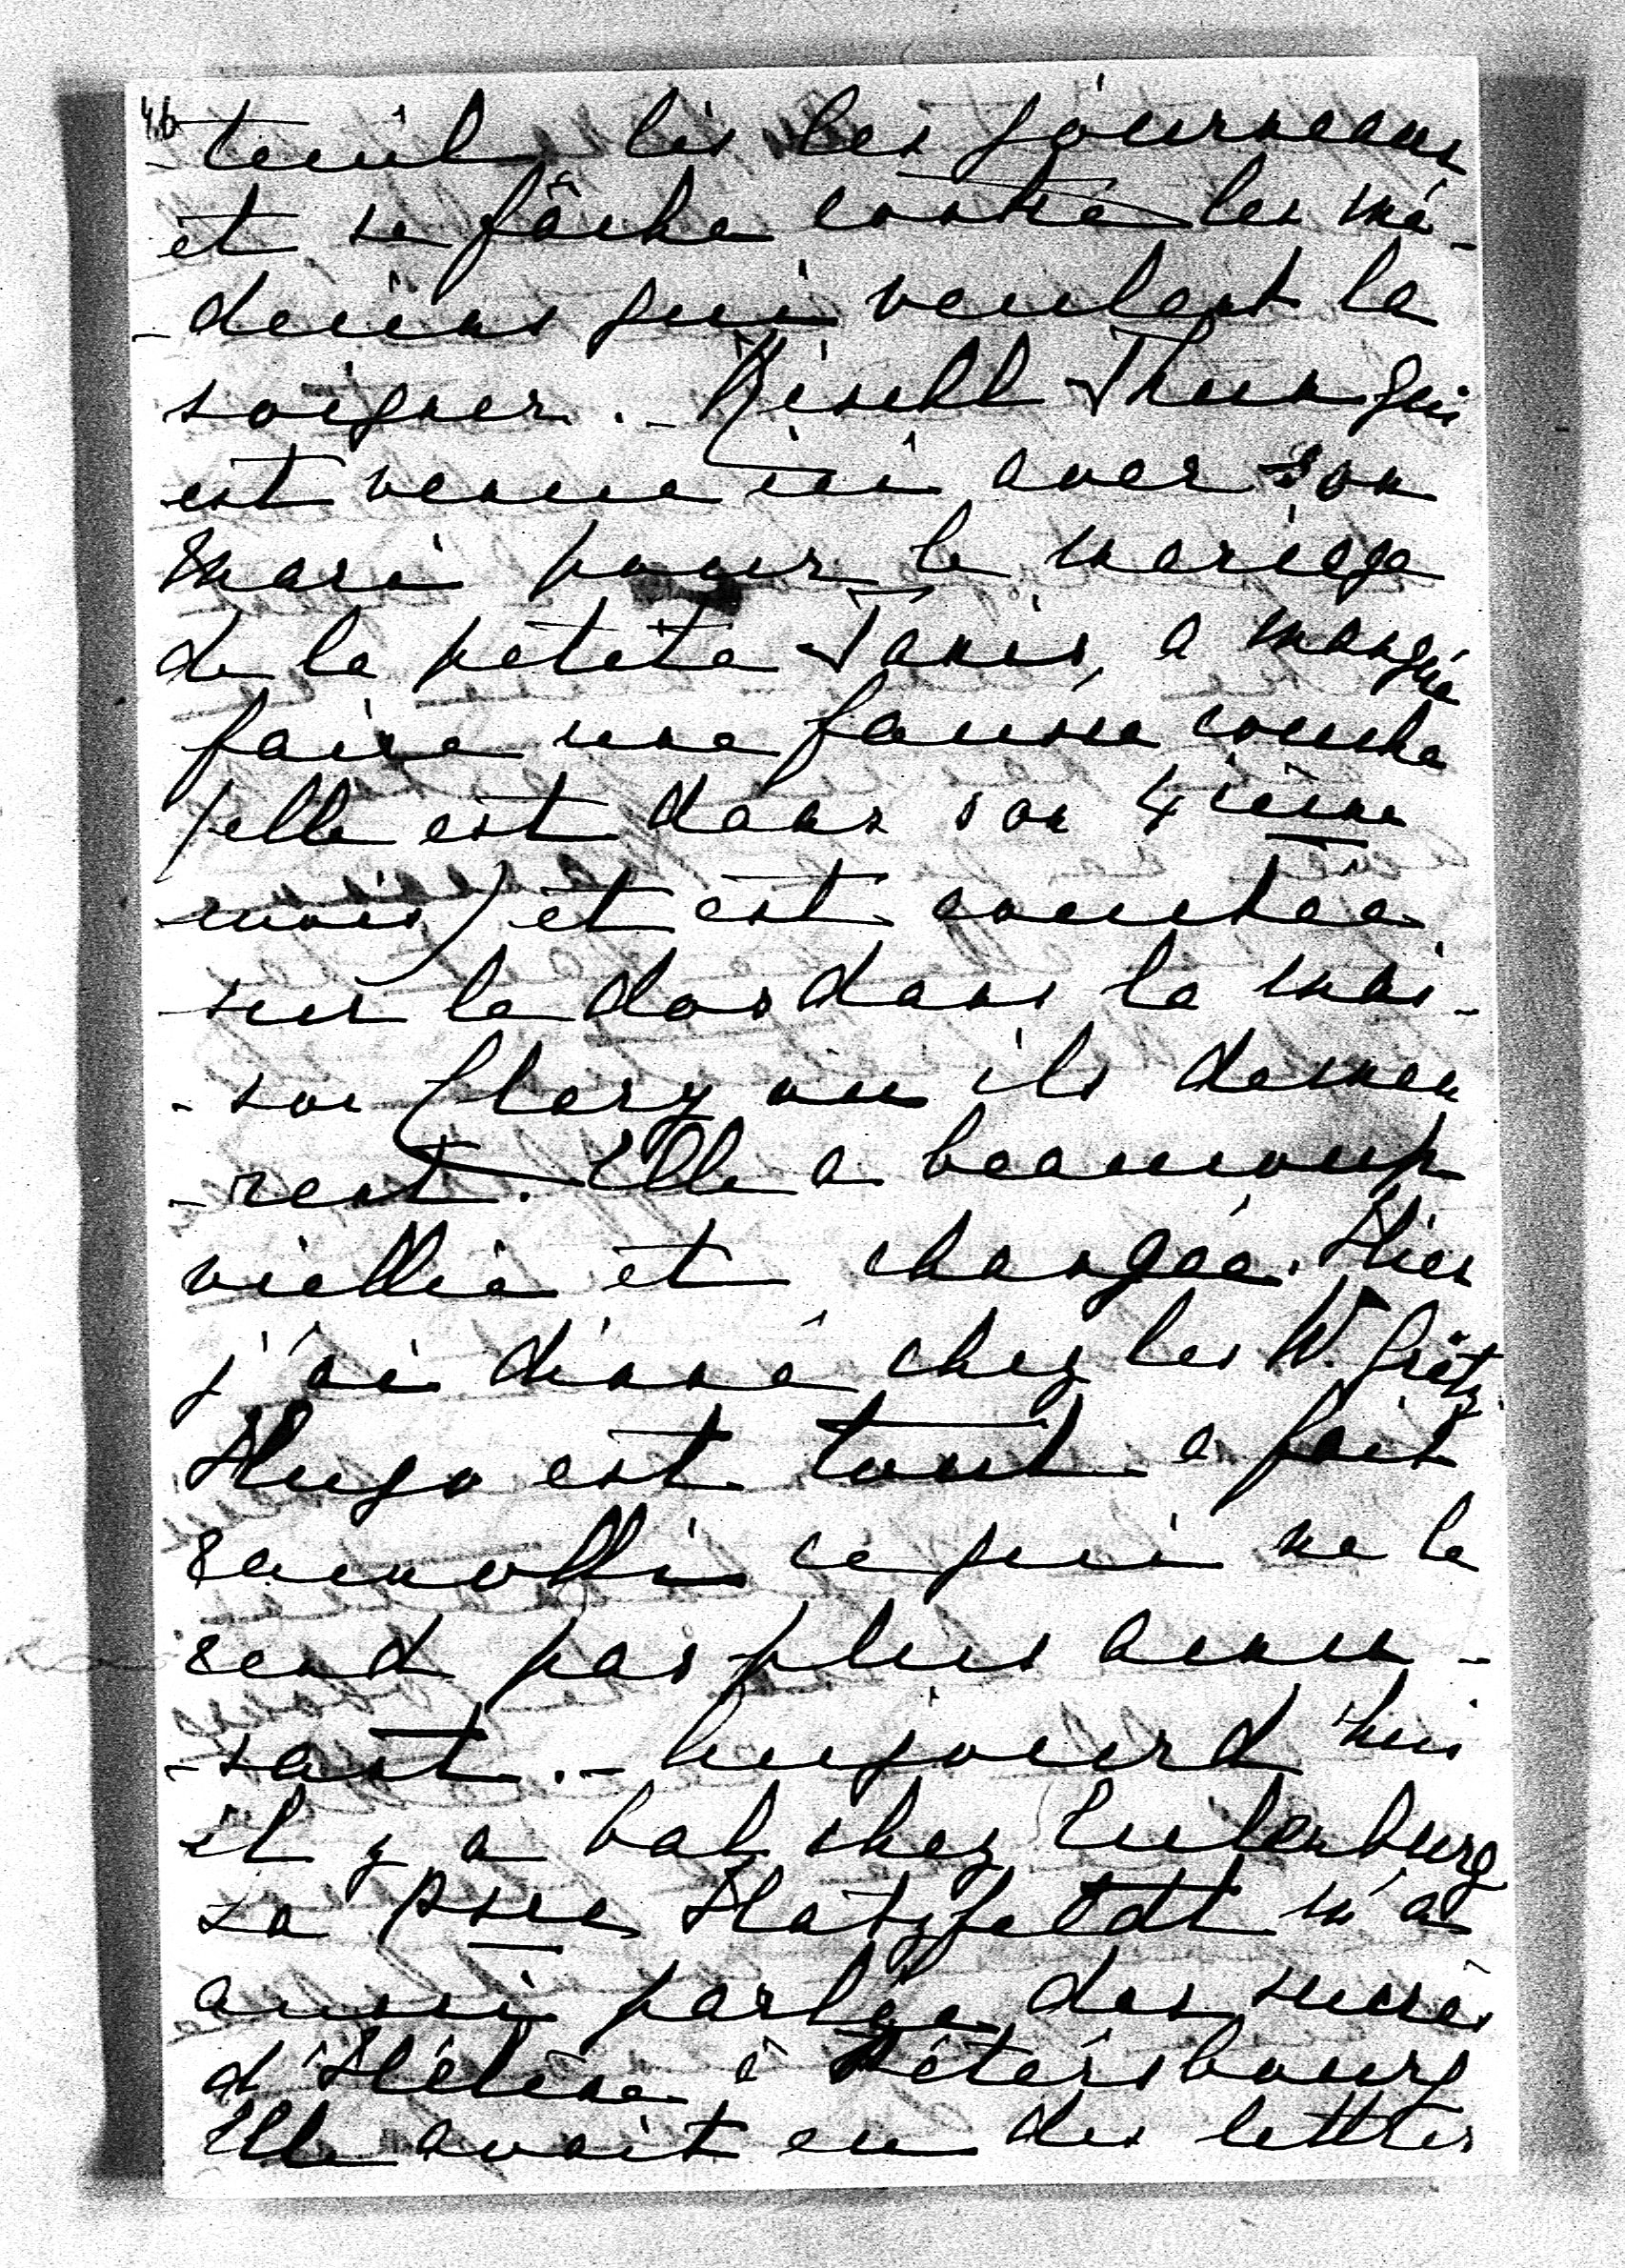 4b
-teuil lis les journeaux
et se fâche contre les mé-
-decins qui veulent le
soigner. - Thun qui
est venue ici avec son
mari pour le mariage
de la petite Tanis, a manqué
faire une fausse couche
(elle est dans son 4ième
mois) et est couchée
sur le dos dans la mai-
-son Clary où ils demeu
-rent. Elle a beaucoup
viellie et changée. Hier
j'ai dinné chez les W. Grätz
Hugo est tout à fait
ramolli ce qui ne le
rend pas plus amu-
-sant. - Aujourd'hui
il y a bal chez Eulenburg
La Psse Hatzfeldt m'a
aussi parlée des succès
d'Hélène à Pétersbourg
Elle avait eu des lettres